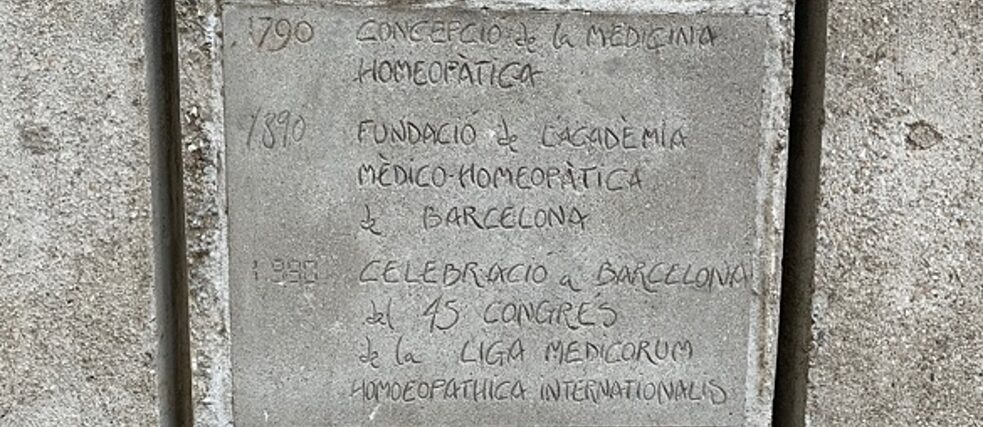 1790 CONCEPCIÓ de la MEDICINA
HOMEOPÀTICA
1890 FUNDACIÓ de L'ACADÈMIA
MÈDICO-HOMEOPÀTICA
de BARCELONA
1990 CELEBRACIÓ a BARCELONA
del 45 CONGRÉS
de la LIGA MEDICORUM
HOMOEOPATHICA INTERNATIONALIS